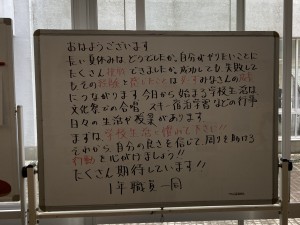 おはようございます
長い夏休みはどうでしたか。自分がやりたいことに
たくさん挑戦できましたか。成功しても失敗して
もその経験を感じたことは必ずみなさんの成長
につながります。今日から始まる学校生活は
文化祭での合唱、スキー宿泊学習などの行事
日々の生活や授業があります
まずは、学校生活に慣れて下さい!!
それから、自分の良さを信じて、周りを助ける
行動を心がけましょう!!
たくさん期待しています!!
1年職員一同